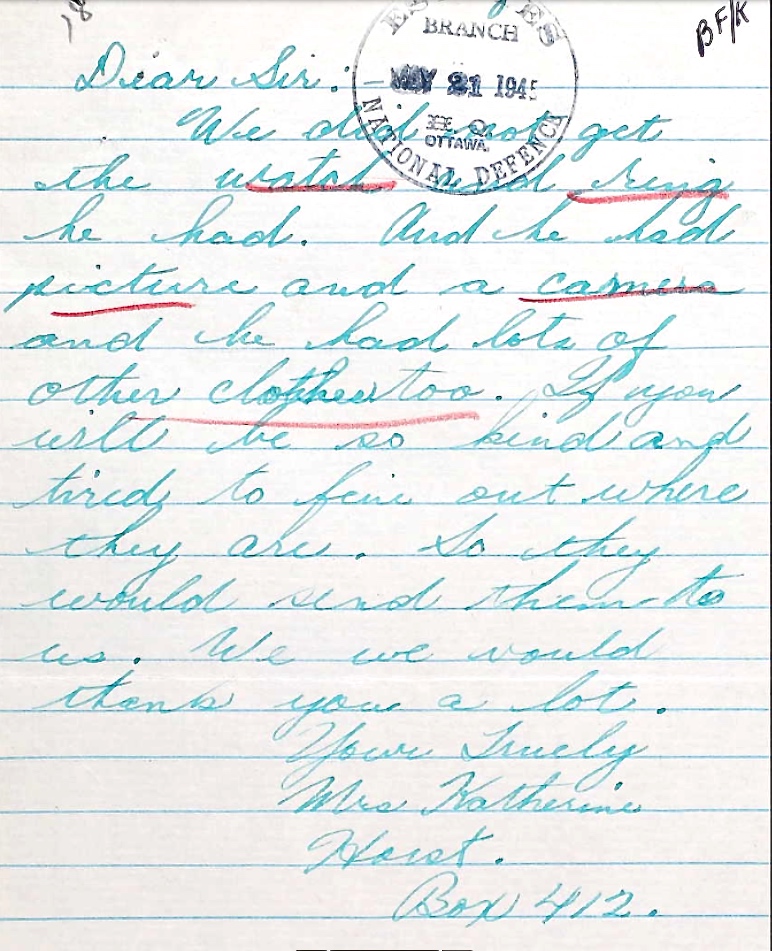 ESTATES
BRANCH
MAY 21 1945
H.Q.
OTTAWA.
NATIONAL DEFENCE
BF/K
Dear Sir:-
We did not get
the watch and ring
he had. And he had
picture and a camera
and he had lots of
other clothes too. If you
will be so kind and
tired to fine out where
they are. So they
would send them to
us. We we would
thank you a lot.
Your Truely
Mrs Katherine
Hoist.
Box 412.